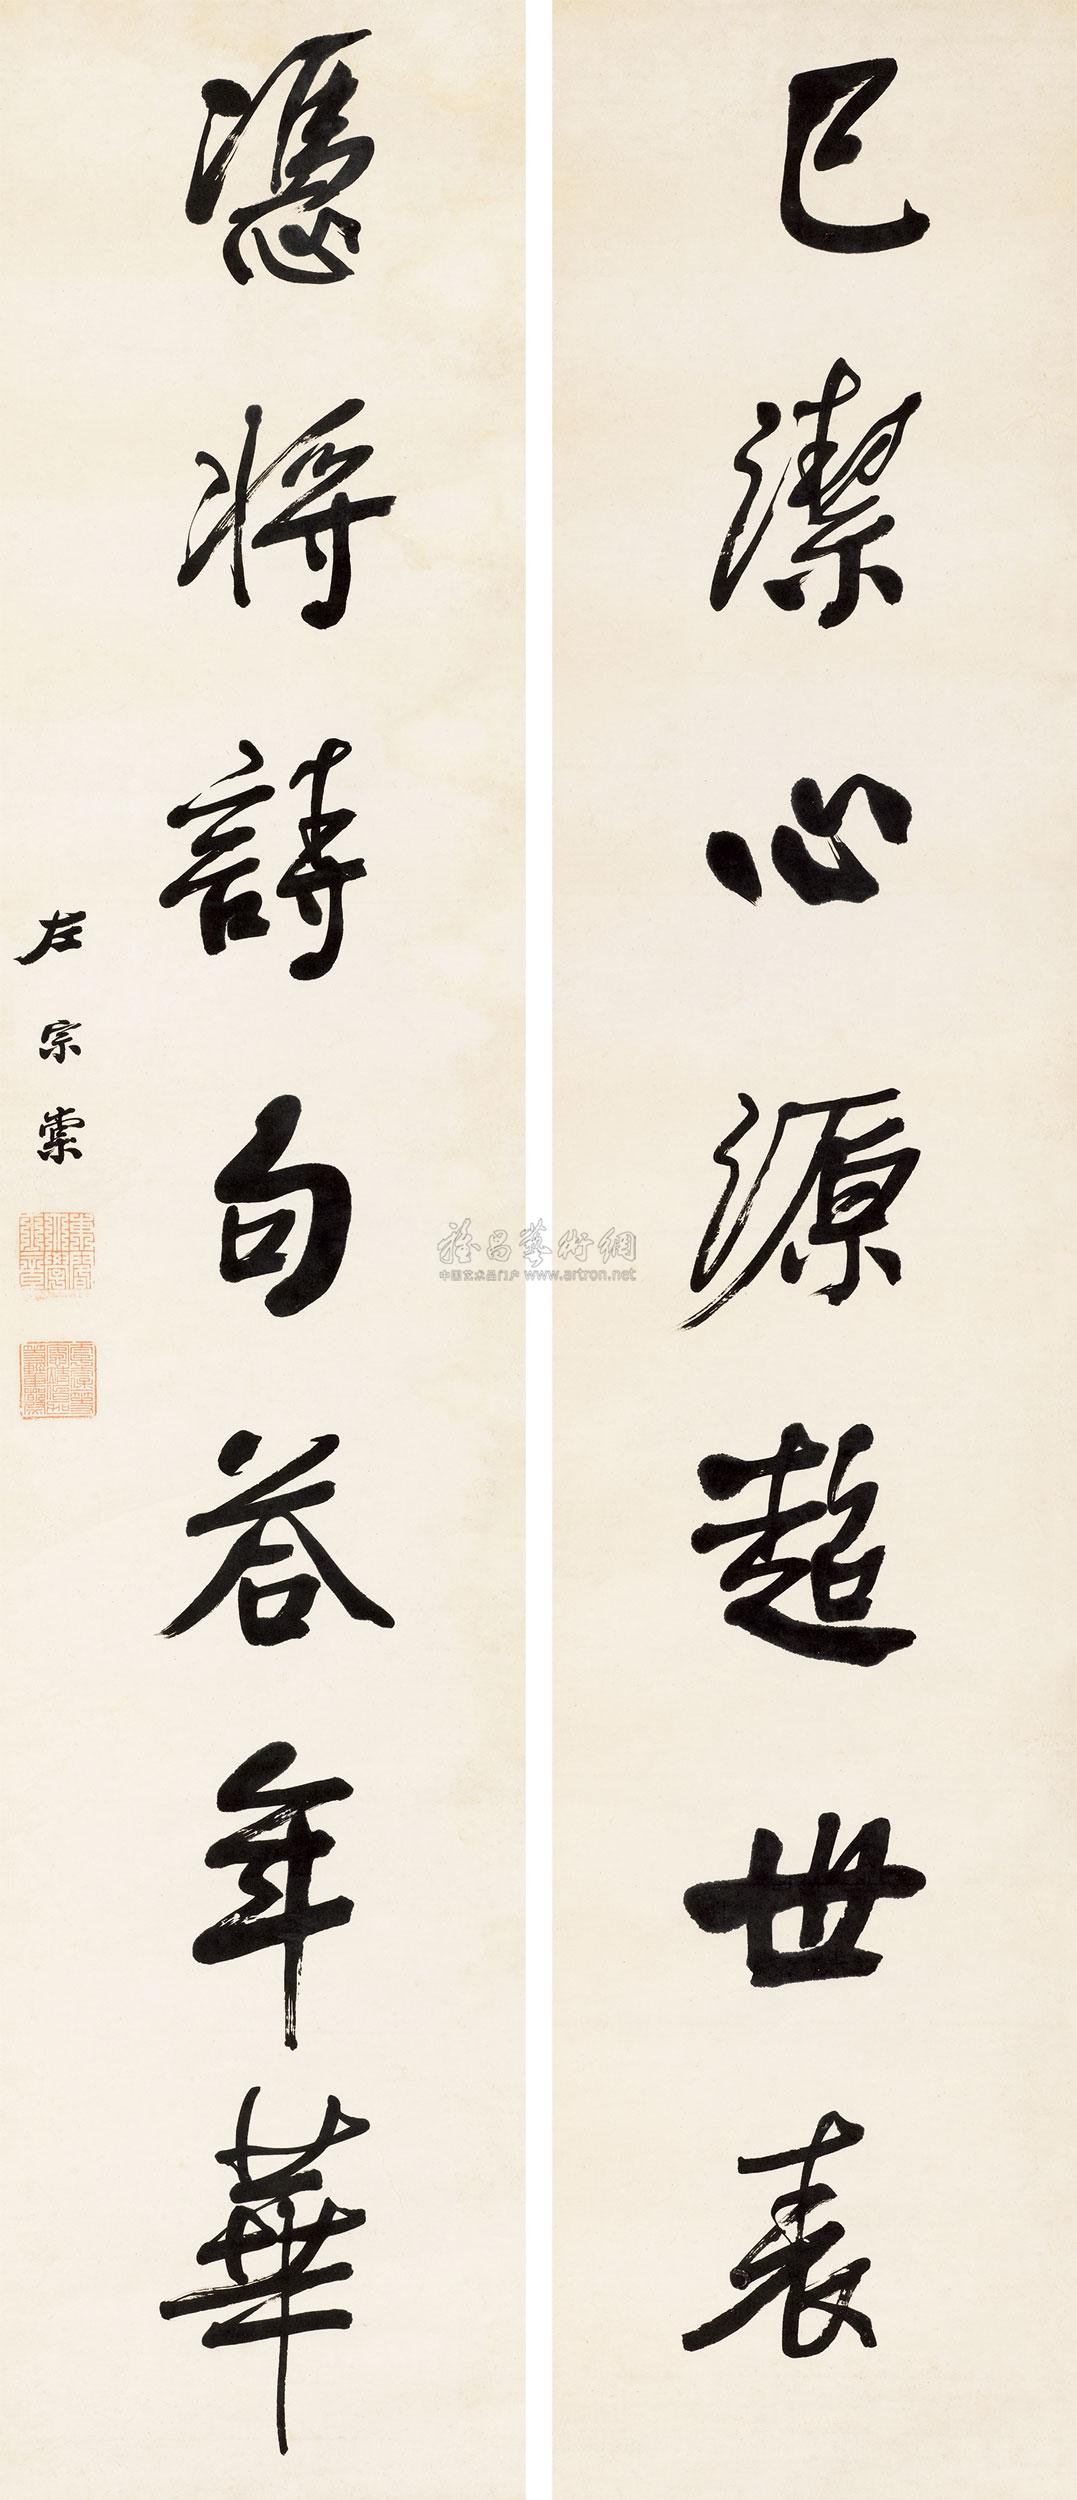 已潔心源超世表
憑將詩句答年華
左宗棠
雅昌藝術網
中国艺术品门户 www.artron.net